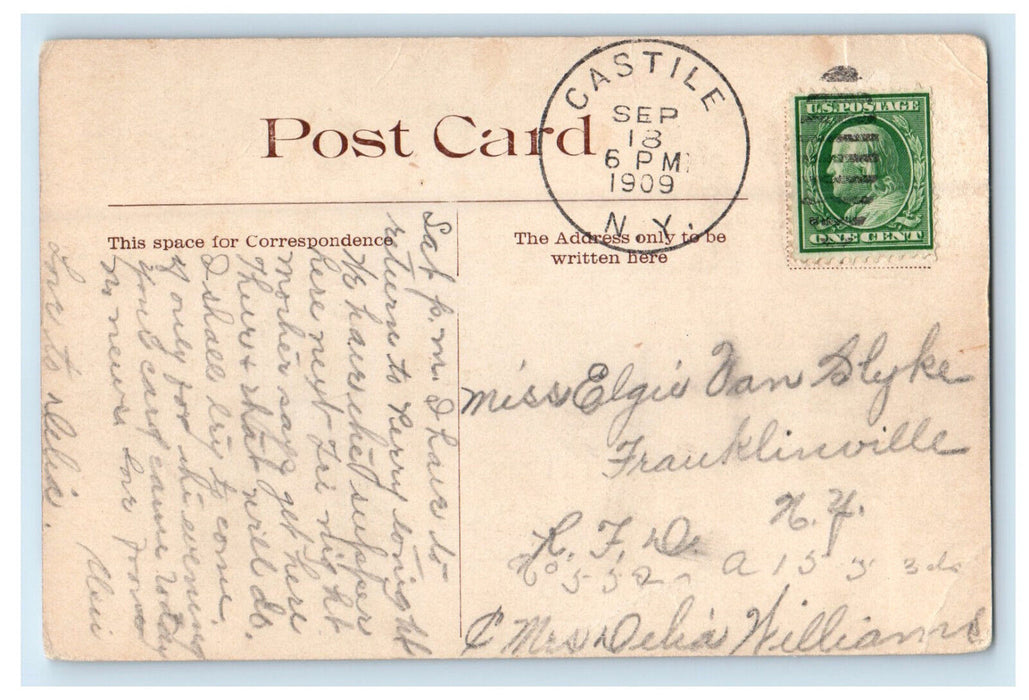 Post Card
CASTILE
SEP
18
6 PM
1909
N.Y.
U.S. POSTAGE
ONE CENT
This space for Correspondence
The Address only to be
written here
Sat p.m. I have to
return to Perry tonight
We have the supper
here next Fri night
mother says get here
Thur + that will do.
I shall try to come,
if only for the evening
Your card came today
no news Love from
Love to Delia.
Miss Elgie Van Slyke
Franklinville
N.Y.
R. F. D.
No 552
A 15
¢ Mrs Delia Williams